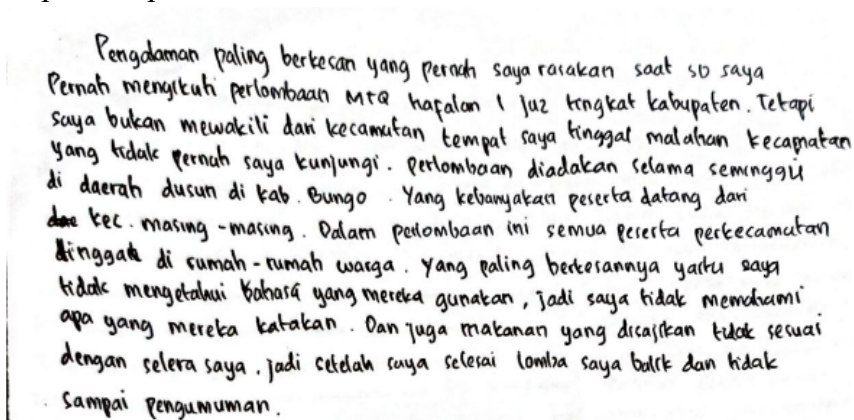 Pengalaman paling berkesan yang pernah saya rasakan saat SD saya
Pernah mengikuti perlombaan MTQ hafalan 1 juz tingkat kabupaten. Tetapi
saya bukan mewakili dari kecamatan tempat saya tinggal malahan kecapmatan
yang tidak pernah saya kunjungi. Perlombaan diadakan selama seminggu
di daerah dusun di kab. Bungo. Yang kebanyakan peserta datang dari
kec. masing-masing. Dalam perlombaan ini semua peserta perkecamatan
tinggal di rumah-rumah warga. Yang paling berkesannya yaitu saya
tidak mengetahui bahasa yang mereka gunakan, jadi saya tidak memahami
apa yang mereka katakan. Dan juga makanan yang disajikan tidak sesuai
dengan selera saya. jadi setelah saya selesai lomba saya balik dan tidak
sampai pengumuman.